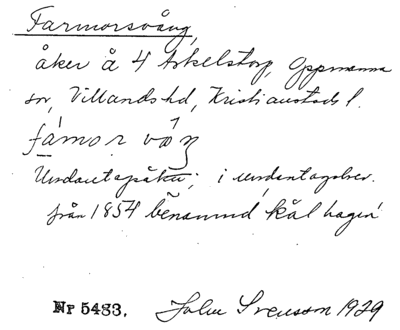 Farmorsvång,
åker å 4 Arkelstorp, Oppmanna
sn, Villands hd, Kristianstads l.
fámor vȧŋ
Undantagsåker; i undantagsbrev.
från 1854 benämnd 'kål hagen'
Nr 5483. John Svensson 1929